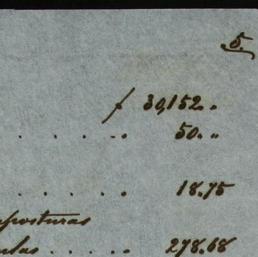 5.
ƒ 30,152 . "
. . . . . . 50 . "
. . . . . . 18.75
posturas
ulas . . . . . 278.68